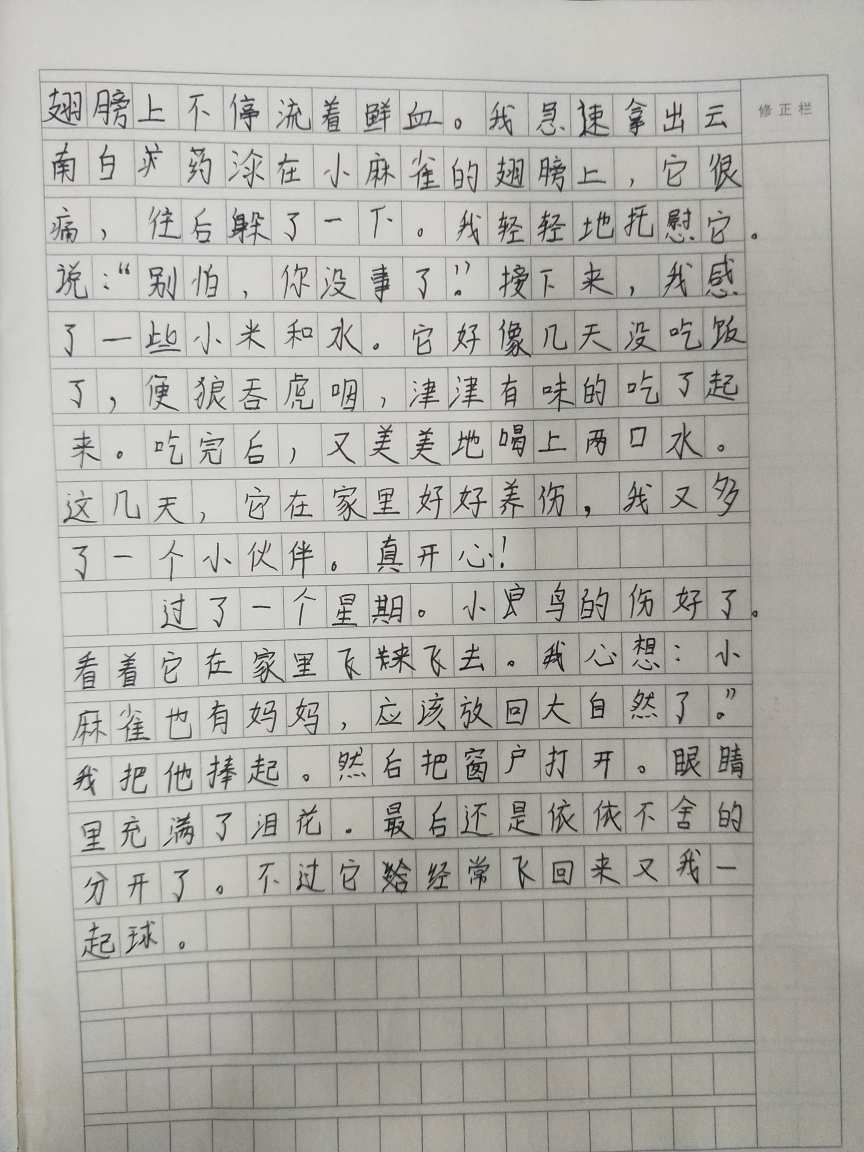 修正栏
翅膀上不停流着鲜血。我急速拿出云
南白药涂在小麻雀的翅膀上，它很
痛，往后躲了一下。我轻轻地抚慰它。
说：“别怕，你没事了”。接下来，我感
了一些小米和水。它好像几天没吃饭
了，便狼吞虎咽，津津有味的吃了起
来。吃完后，又美美地喝上两口水。
这几天，它在家里好好养伤，我又多
了一个小伙伴。真开心！
过了一个星期。小鸟的伤好了。
看着它在家里飞来飞去。我心想：小
麻雀也有妈妈，应该放回大自然了。”
我把他捧起。然后把窗户打开。眼睛
里充满了泪花。最后还是依依不舍的
分开了。不过它经常飞回来又我一
起球。